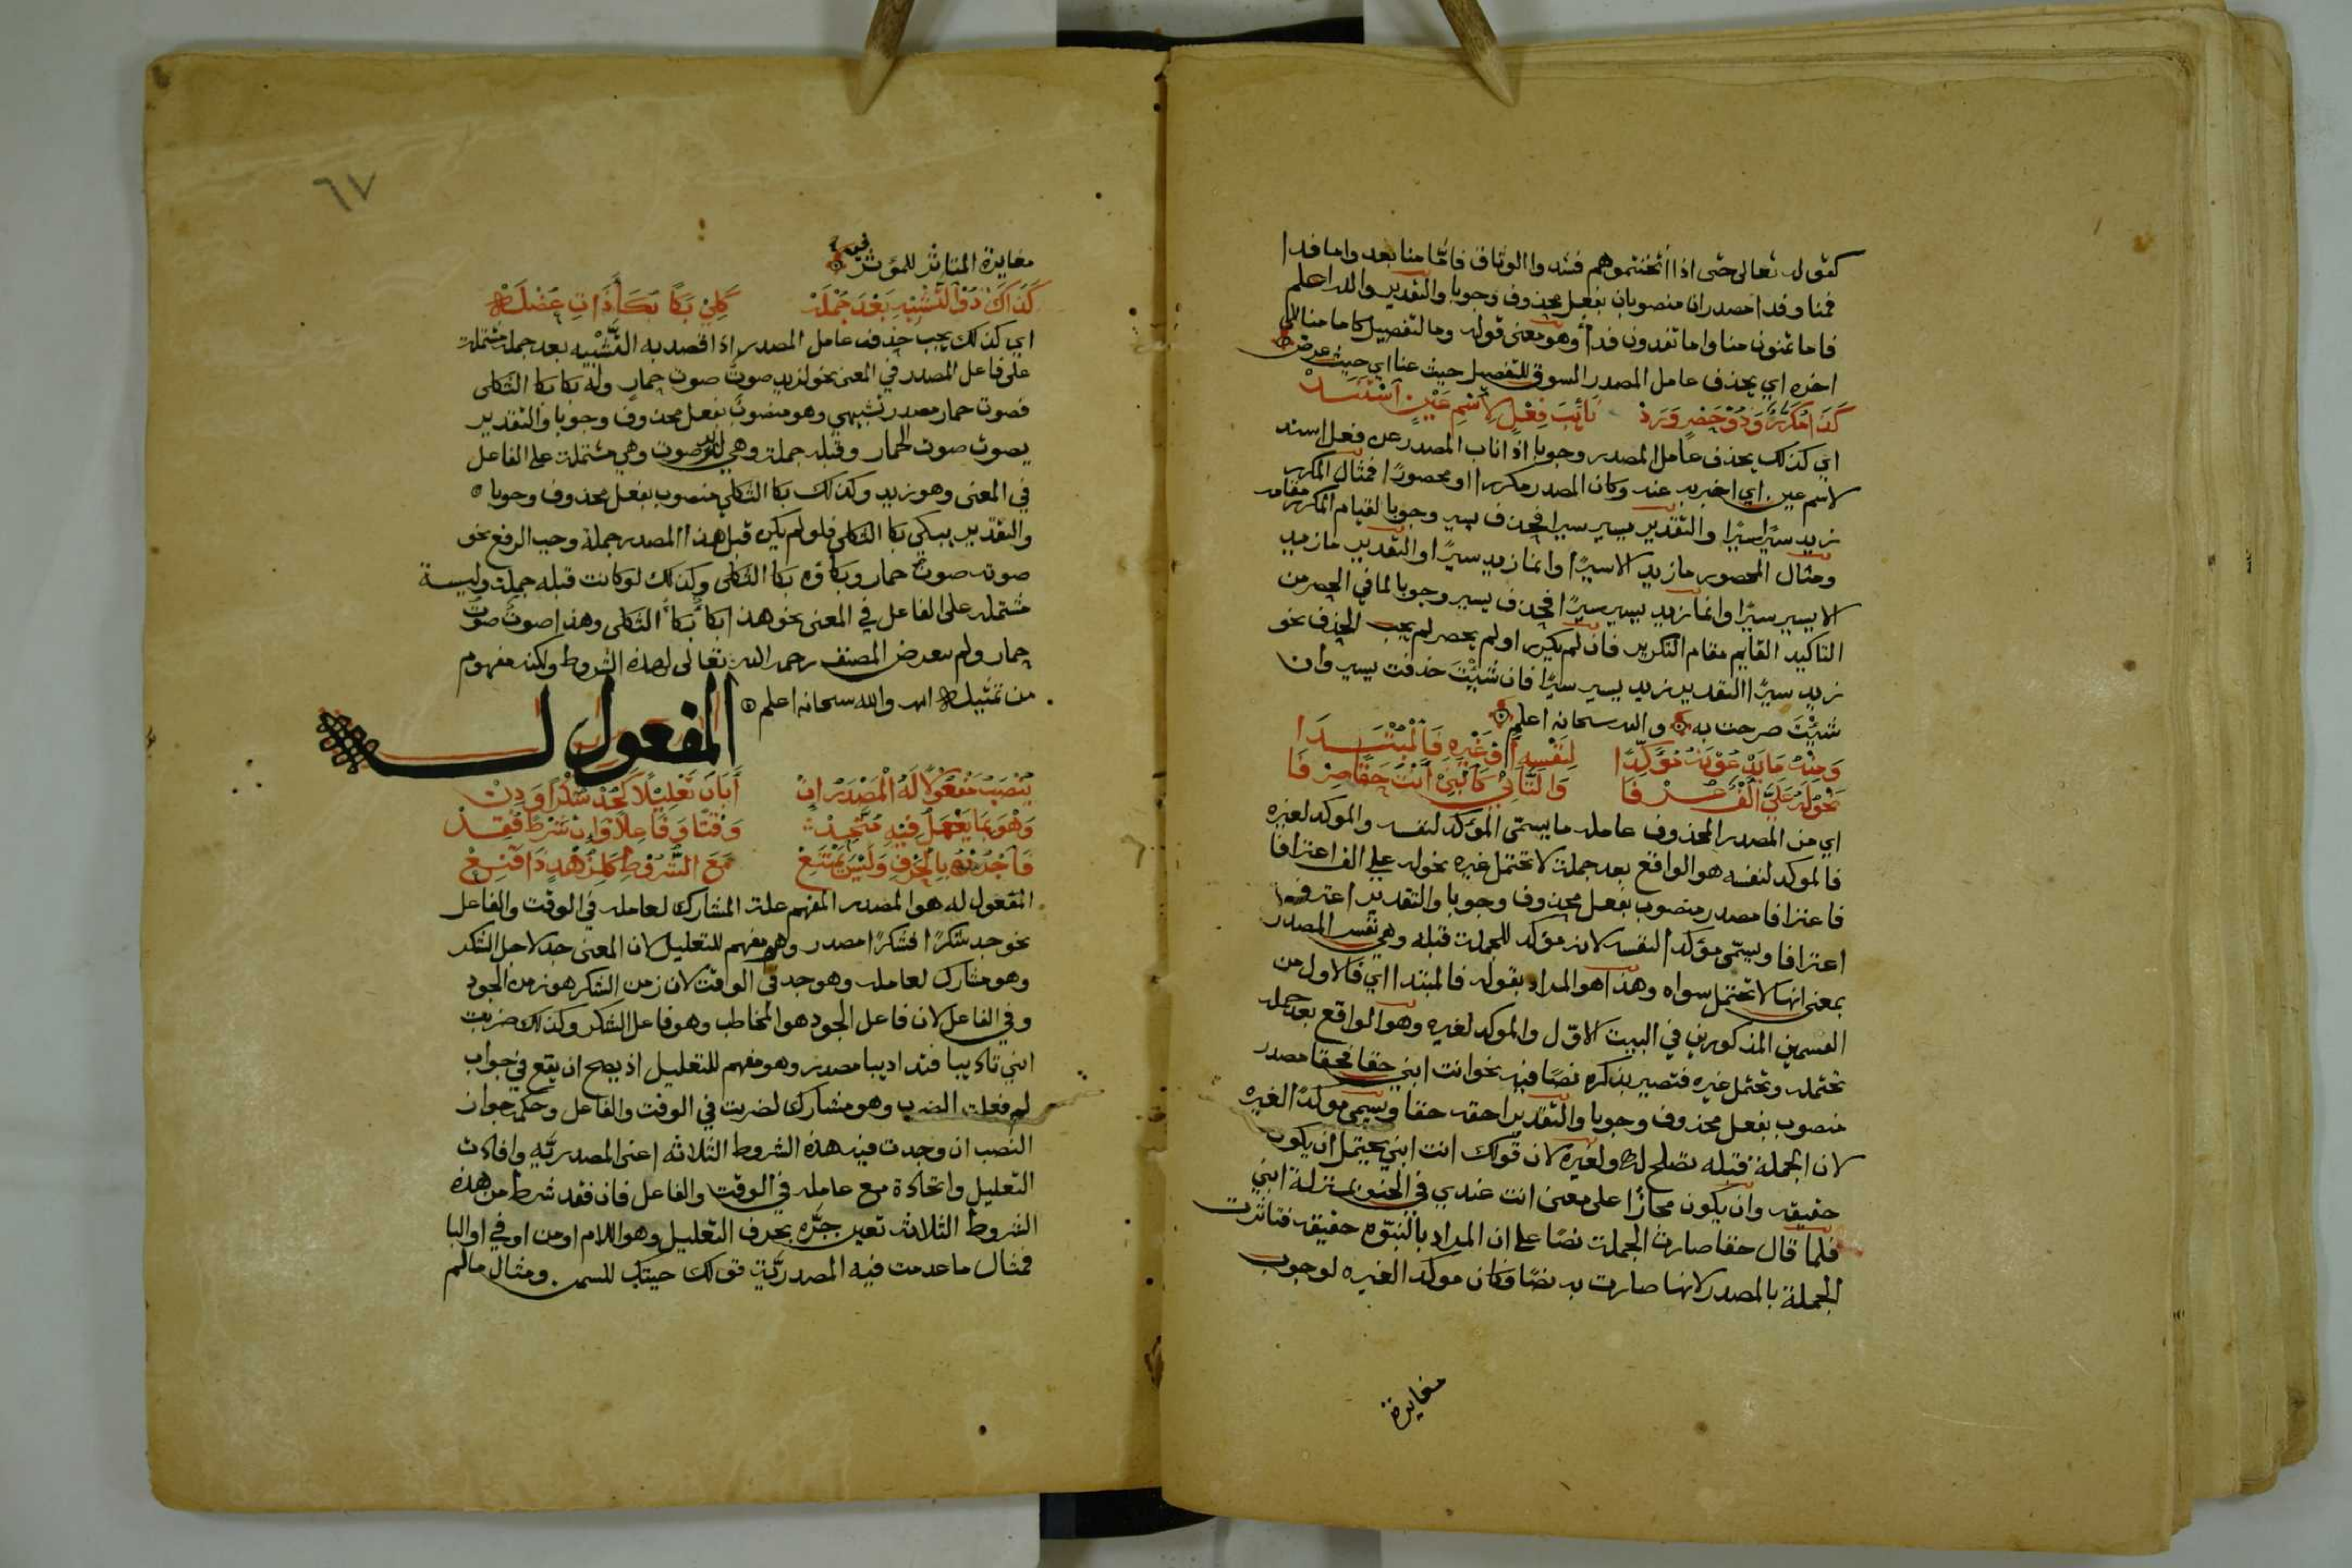 كقوله تعالى حتى اذا اثخنتموهم فشدوا الوثاق فاما منا بعد واما فدا
فمنا وفدا مصدران منصوبان بفعل محذوف وجوبا والتقدير والله اعلم
فاما تمنون منا واما تفدون فدأ وهو معنى قوله وما لتفصيل كاما منا الي
اخره اي يحذف عامل المصدر المسوق للتفصيل حيث عنا اي حيث عرض
كَذَا مُكَرَّرٌ وَذُوْ حَصْرٍ وَرَدْ نَائِبَ فِعْلٍ لِاسْمِ عَيْنٍ اسْتَنَدْ
اي كذلك يحذف عامل المصدر وجوبا اذا ناب المصدر عن فعل اسند
لاسم عين اي اخبر به عنه وكان المصدر مكررا او محصورًا فمثال المكرر
زيد سيرًا سيرًا والتقدير يسير سيرا فحذف يسير وجوبا لقيام المكرر مقامه
ومثال المحصور ما زيد الا سيرًا وانما زيد سيرًا والتقدير ما زيد
الا يسير سيرًا وانما زيد يسير سيرًا فحذف يسير وجوبا لما في الحصر من
التاكيد القايم مقام التكرير فان لم يكرر او لم يحصر لم يجب الحذف نحو
زيد سيرًا التقدير زيد يسير سيرًا فان شيْتَ حذفت يسير وان
شيْتَ صرحت به والله سبحانه اعلم
وَمِنْهُ مَا يَدْعُوْنَهُ مُؤَكِّدًا لِنَفْسِهِ أَوْ غَيْرِهِ فَالْمُبْتَدَا
نَحْوُ لَهُ عَلَيَّ أَلْفٌ عُرْفَا وَالثَّانِيْ كَابْنِيْ أَنْتَ حَقًّا صِرْفَا
اي من المصدر المحذوف عامله ما يسمى المؤكد لنفسه والموكد لغيره
فالموكد لنفسه هو الواقع بعد جملة لا تحتمل غيره نحو له علي الف اعترافا
فاعترافا مصدر منصوب بفعل محذوف وجوبا والتقدير اعترف
اعترافا ويسمّى مؤكدا لنفسه لانه مؤكد للجملة قبله وهي نفس المصدر
بمعنى انها لا تحتمل سواه وهذا هو المراد بقوله فالمبتدا اي فالاول من
القسمين المذكورين في البيت الاوّل والموكد لغيره وهو الواقع بعد جمله
تحتمله وتحتمل غيره فتصير بذكره نصًا فيه نحو انت ابني حقا فحقا مصدر
منصوب بفعل محذوف وجوبا والتقدير احقه حقا ويسمى موكدًا لغيره
لان الجملة قبله تصلح له ولغيره لان قولك انت ابني يحتمل ان يكون
حقيقه وان يكون مجازًا على معنى انت عندي في الحنو بمنزلة ابني
فلما قال حقا صارت الجملة نصًا على ان المراد بالبنوّه حقيقه فتاثرت
الجملة بالمصدر لانها صارت به نصًا فكان موكدا لغيره لوجوب
مغايرة
٦٧
مغايرة المتاثر للمؤثر فيه
كَذَاكَ ذُوْ التَّشْبِيْهِ بَعْدَ جُمْلَهْ كَلِيْ بُكًا بُكَاءَ ذَاتِ عُضْلَهْ
اي كذلك يجب حذف عامل المصدر اذا قصد به التَّشْبيه بعد جملة مشتملة
على فاعل المصدر في المعنى نحو لزيد صوتٌ صوت حمارٍ وله بكا بكا الثكلى
فصوت حمار مصدر تشبيهي وهو منصوبٌ بفعل محذوف وجوبا والتقدير
يصوت صوت الحمار وقبله جملة وهي لزيد صوت وهي مشتملة على الفاعل
في المعنى وهو زيد وكذلك بكا الثكلي منصوب بفعل محذوف وجوبا
والتقدير يبكي بكا الثكلي فلو لم يكن قبل هذا المصدر جملة وجب الرفع نحو
صوته صوتُ حمار وبكاؤه بكا الثكلى وكذلك لو كانت قبله جملة وليسة
مشتمله على الفاعل في المعنى نحو هذا بكاءٌ بكاءُ الثكلى وهذا صوتٌ صوْتُ
حمار ولم يتعرض المصنف رحمه الله تعالى لهذه الشروط ولكنه مفهوم
من تمثيله والله سبحانه اعلم
المفعول له
يُنْصَبُ مَفْعُوْلًا لَهُ الْمَصْدَرُ إِنْ أَبَانَ تَعْلِيْلًا كَجُدْ شُكْرًا وَدِنْ
وَهْوَ بِمَا يَعْمَلُ فِيْهِ مُتَّحِدْ وَقْتًا وَفَاعِلًا وَإِنْ شَرْطٌ فُقِدْ
فَاجْرُرْهُ بِالْحَرْفِ وَلَيْسَ يَمْتَنِعْ مَعَ الشُّرُوْطِ كَلِزُهْدٍ ذَا قَنِعْ
المفعول له هو المصدر المفهم علة المشارك لعامله في الوقت والفاعل
نحو جد شكرًا فشكرًا مصدر وهو مفهم للتعليل لان المعنى جد لاجل الشكر
وهو مشارك لعامله وهو جد في الوقت لان زمن الشكر هو زمن الجود
وفي الفاعل لان فاعل الجود هو المخاطب وهو فاعل الشكر وكذلك ضربت
ابني تاديبا فتاديبا مصدر وهو مفهم للتعليل اذ يصح ان يقع في جواب
لم فعلت الضرب وهو مشارك لضربت في الوقت والفاعل وحكمه جواز
النصب ان وجدت فيه هذه الشروط الثلاثه اعني المصدريّه وافادت
التعليل واتحاده مع عامله في الوقت والفاعل فان فقد شرط من هذه
الشروط الثلاثه تعين جَرّه بحرف التعليل وهو اللام او من او في او البا
فمثال ما عدمت فيه المصدريّة قولك جيتك للسمن ومثال ما لم